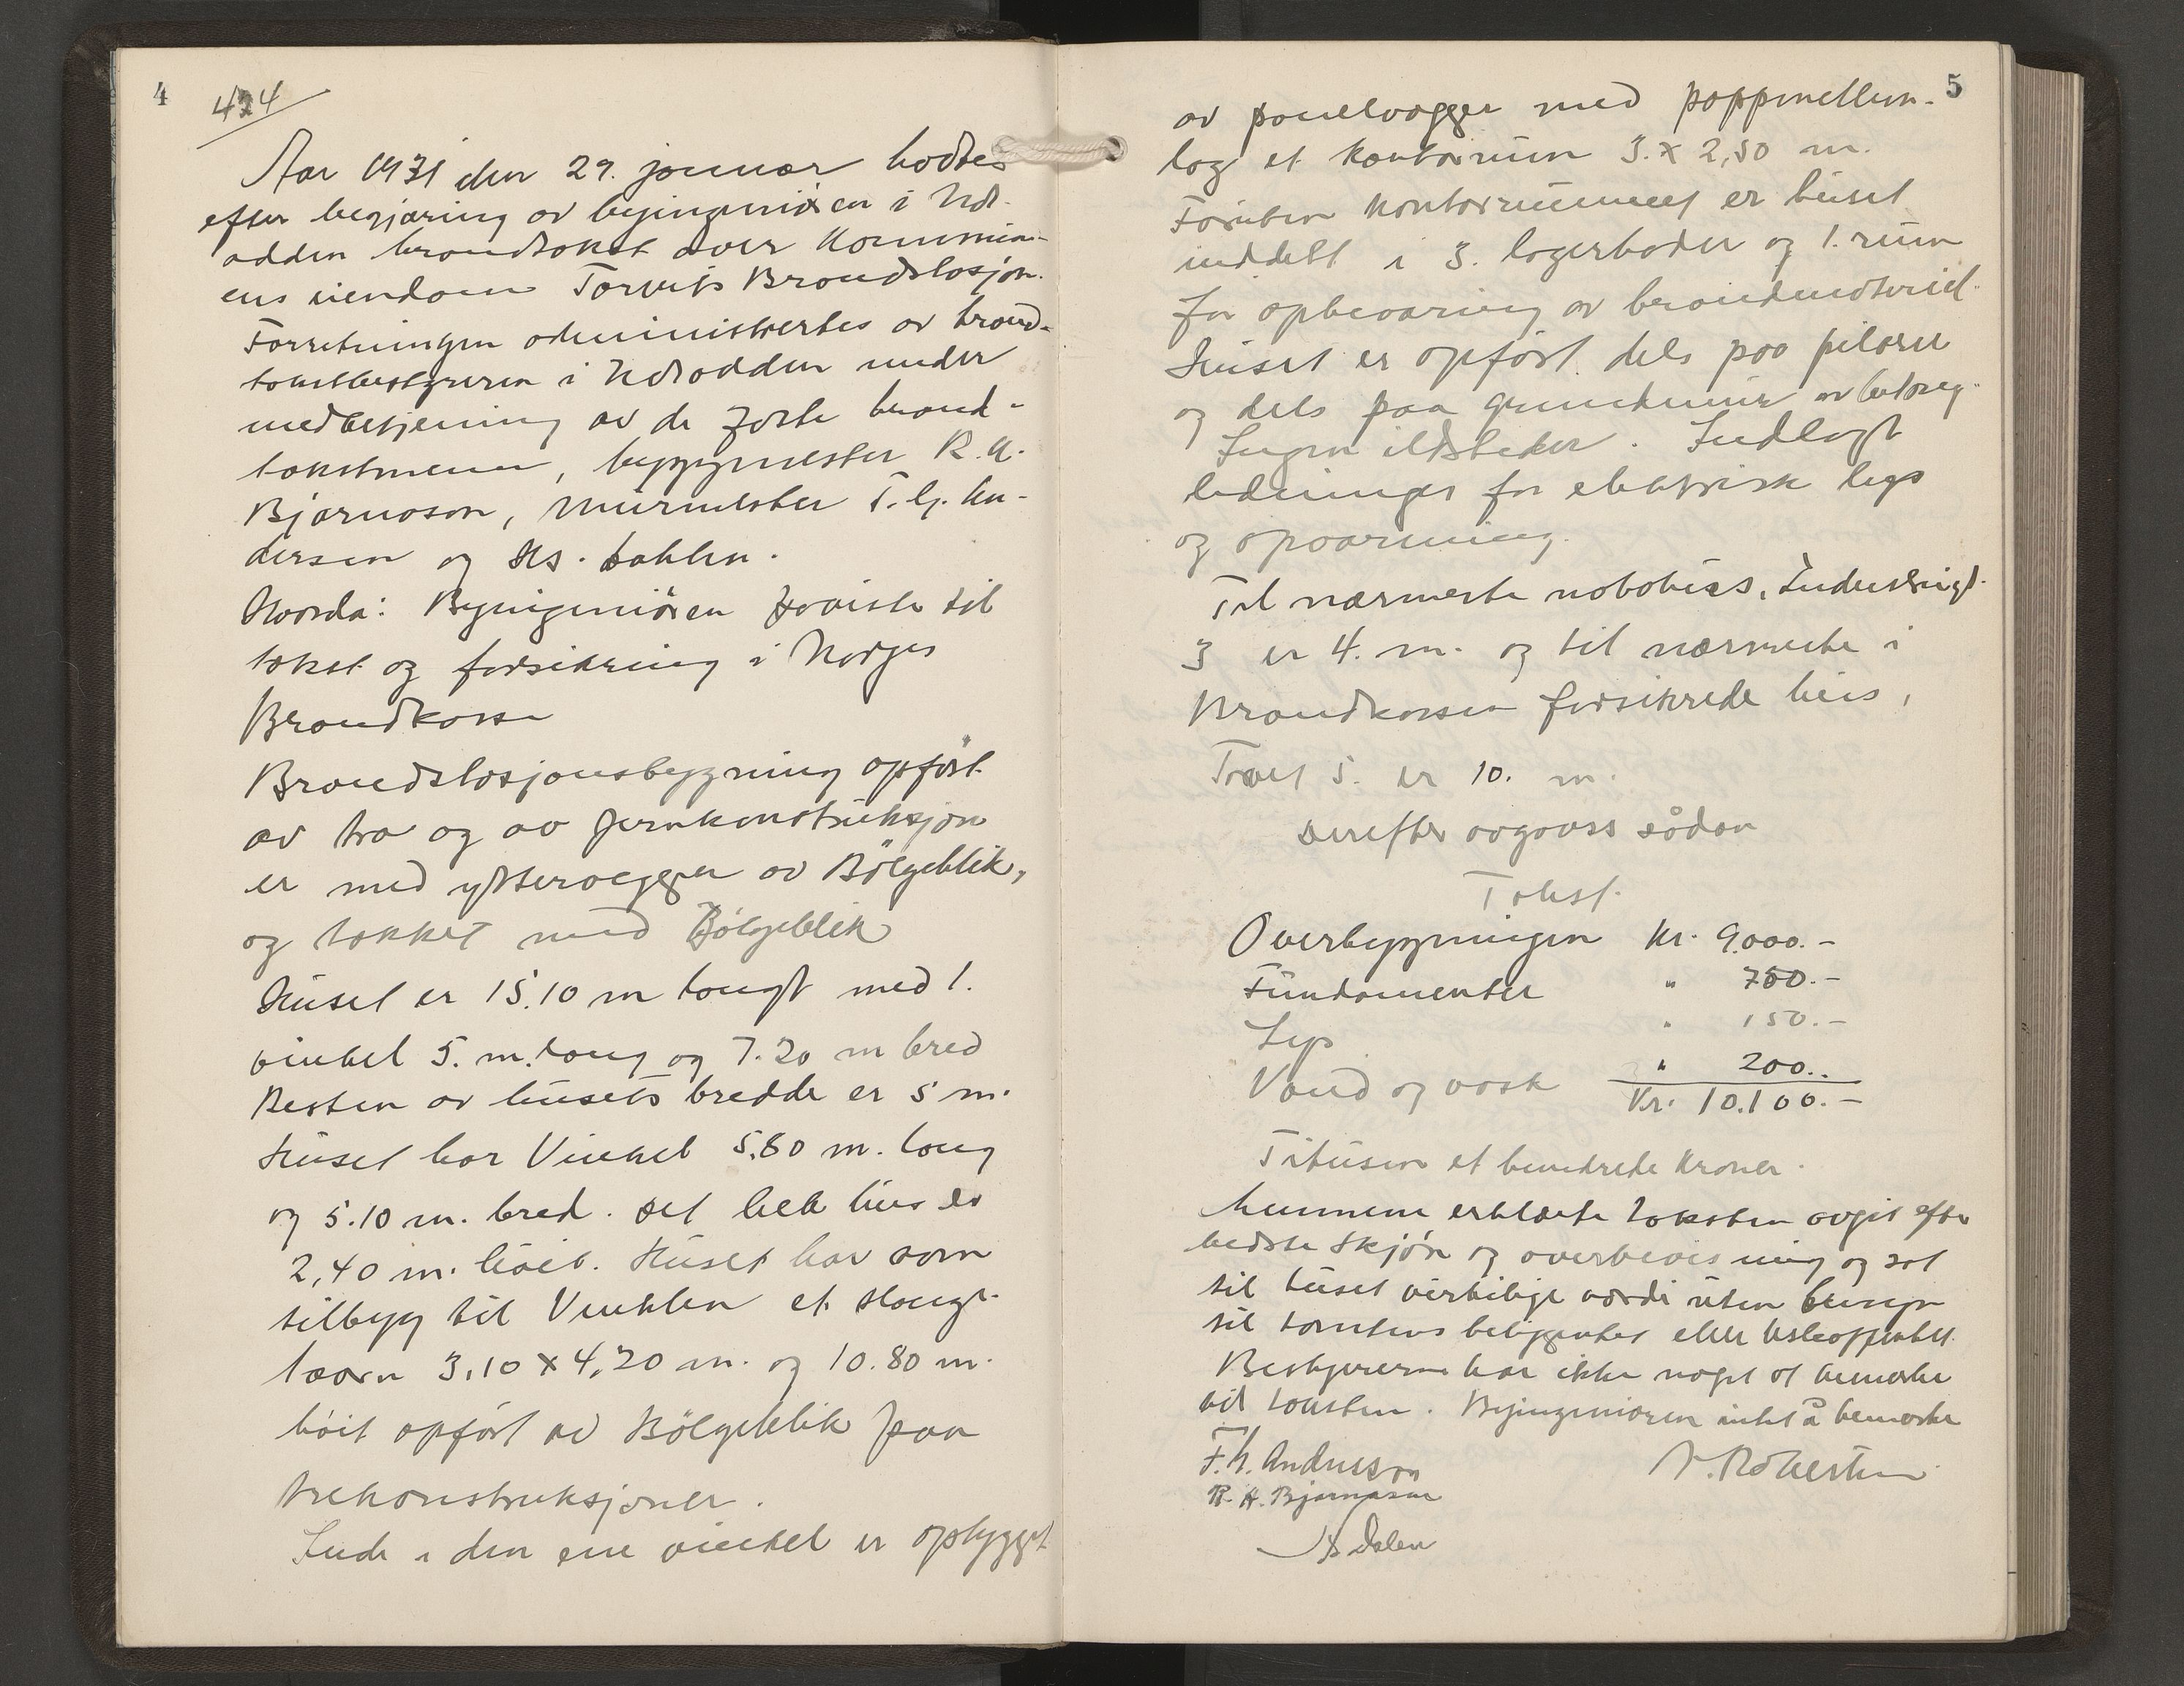 4
424
Aar 1931 den 29. januar holdtes
efter begjæring av byingeniøren i Not-
odden brandtakst over Kommun-
ens eiendom Torvets Brandstasjon.
Forretningen administrertes av brand-
takstbestyreren i Notodden under
medbetjening av de faste brand-
takstmenn, byggmester R. A.
Bjarnason, Murmester T. Hj. An-
dersen og Hs. Dahlen.
Hvorda: Byingeniøren paaviste til
takst og forsikring i Norges
Brandkasse
Brandstasjonsbygning opført
av træ og av jernkonstruksjon
er med yttervægger av Bølgeblik,
og tækket med Bølgeblik
Huset er 15.10 m langt med 1.
vinkel 5. m. lang og 7.20 m bred
Resten av husets bredde er 5 m.
Huset har Vinkel 5.80 m. lang
og 5.10 m. bred. Det hele hus er
2,40 m. høit. Huset har som
tilbygg til Vinklen et slange-
taarn 3,10 x 4,20 m. og 10.80 m.
høit opført av Bølgeblik paa
trekonstruksjoner.
Inde i den ene vinkel er opbygget
5
av panelvægger med pappmellem-
lag et kontorrum 3. x 2,50 m.
Foruten Kontorrummet er huset
inddelt i 3. lagerboder og 1. rum
for opbevaring av brandmateriel.
Huset er opført dels paa pilarer
og dels paa grundmur av betong.
Ingen ildsteder. Indlagt
ledninger for elektrisk lys
og opvarming.
Til nærmeste nabohus, Industrigt.
3 er 4. m. og til nærmeste i
Brandkassen forsikrede hus,
Torvet 5. er 10. m.
Derefter avgavss sådan
Takst.
Overbygningen Kr. 9.000.-
Fundamenter " 750.-
Lys " 150.-
Vand og vask " 200..
Kr. 10.100.-
Titusen et hundrede Kroner.
Mennene erklærte taksten avgit efter
bedste Skjøn og overbevisning og sat
til huset virkelige værdi uten hensyn
til tomtens beliggenhet eller
Bestyreren har ikke noget at bemerke
ved taksten. Byingeniøren intet å bemerke
T. H. Andersson
R. A. Bjarnason
Hs Dalen